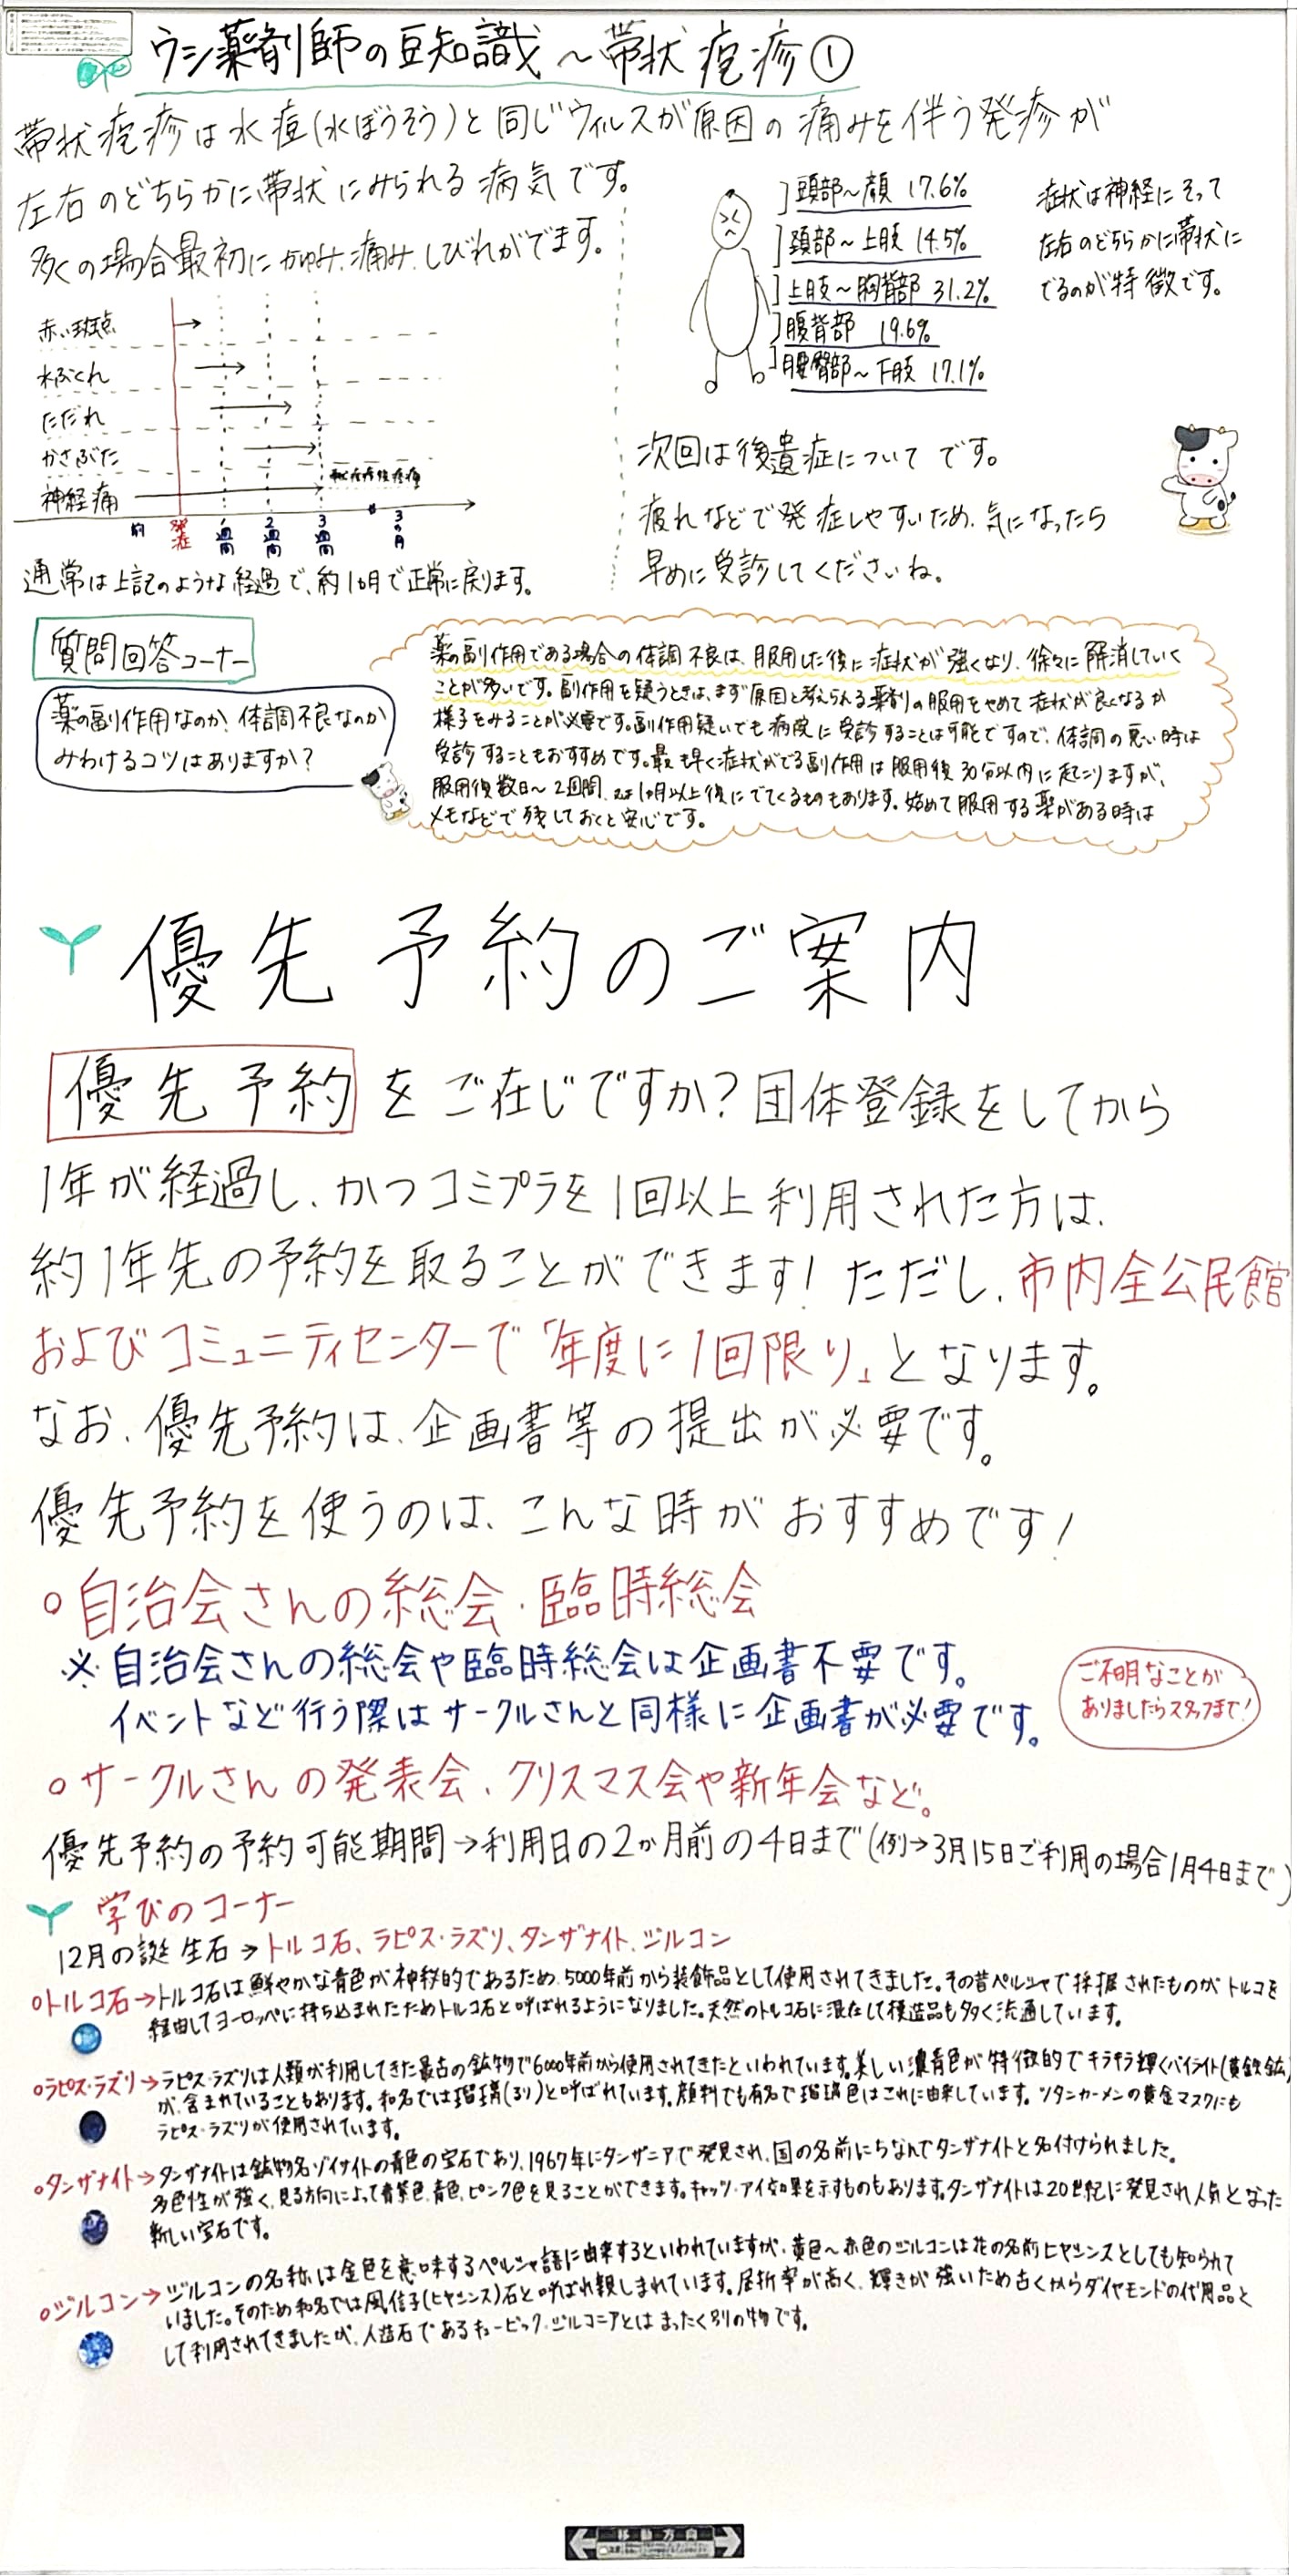 ウシ薬剤師の豆知識～帯状疱疹①
帯状疱疹は水痘(水ぼうそう)と同じウィルスが原因の痛みを伴う発疹が
左右のどちらかに帯状にみられる病気です。
多くの場合最初にかゆみ、痛み、しびれがでます。
赤い斑点
水ぶくれ
ただれ
かさぶた
神経痛
前
発症
1週間
2週間
3週間
3ヶ月
通常は上記のような経過で、約1ヶ月で正常に戻ります。
頭部～顔 17.6%
頚部～上肢 14.5%
上肢～胸背部 31.2%
腹背部 19.6%
腰臀部～下肢 17.1%
症状は神経にそって
左右のどちらかに帯状に
でるのが特徴です。
次回は後遺症についてです。
疲れなどで発症しやすいため、気になったら
早めに受診してくださいね。
質問回答コーナー
薬の副作用なのか、体調不良なのか
みわけるコツはありますか?
薬の副作用である場合の体調不良は、服用した後に症状が強くなり、徐々に解消していく
ことが多いです。副作用を疑うときは、まず原因と考えられる薬剤の服用をやめて症状が良くなるか
様子をみることが必要です。副作用疑いでも病院に受診することは可能ですので、体調の悪い時は
受診することもおすすめです。最も早く症状がでる副作用は服用後30分以内に起こりますが、
服用後数日～2週間、1ヶ月以上後にでてくるものもあります。始めて服用する薬がある時は
メモなどで残しておくと安心です。
優先予約のご案内
優先予約をご在じですか?団体登録をしてから
1年が経過し、かつコミプラを1回以上利用された方は、
約1年先の予約を取ることができます!ただし、市内全公民館
およびコミュニティセンターで「年度に1回限り」となります。
なお、優先予約は、企画書等の提出が必要です。
優先予約を使うのは、こんな時がおすすめです!
○自治会さんの総会・臨時総会
※自治会さんの総会や臨時総会は企画書不要です。
イベントなど行う際はサークルさんと同様に企画書が必要です。
ご不明なことが
ありましたらスタッフまで!
○サークルさんの発表会、クリスマス会や新年会など。
優先予約の予約可能期間→利用日の2か月前の4日まで(例→3月15日ご利用の場合1月4日まで)
学びのコーナー
12月の誕生石→トルコ石、ラピス・ラズリ、タンザナイト、ジルコン
○トルコ石→トルコ石は鮮やかな青色が神秘的であるため、5000年前から装飾品として使用されてきました。その昔ペルシャで採掘されたものがトルコを
経由してヨーロッパに持ち込まれたためトルコ石と呼ばれるようになりました。天然のトルコ石に混在して模造品も多く流通しています。
○ラピス・ラズリ→ラピス・ラズリは人類が利用してきた最古の鉱物で6000年前から使用されてきたといわれています。美しい濃青色が特徴的でキラキラ輝くパイライト(黄鉄鉱)
が、含まれていることもあります。和名では瑠璃(るり)と呼ばれています。顔料でも有名で瑠璃色はこれに由来しています。ツタンカーメンの黄金マスクにも
ラピス・ラズリが使用されています。
○タンザナイト→タンザナイトは鉱物名ゾイサイトの青色の宝石であり、1967年にタンザニアで発見され、国の名前にちなんでタンザナイトと名付けられました。
多色性が強く、見る方向によって青紫色、青色、ピンク色を見ることができます。キャッツ・アイ効果を示すものもあります。タンザナイトは20世紀に発見され人気となった
新しい宝石です。
○ジルコン→ジルコンの名称は金色を意味するペルシャ語に由来するといわれていますが、黄色～赤色のジルコンは花の名前ヒヤシンスとしても知られて
いました。そのため和名では風信子(ヒヤシンス)石と呼ばれ親しまれています。屈折率が高く、輝きが強いため古くからダイヤモンドの代用品と
して利用されてきましたが、人造石であるキュービック・ジルコニアとはまったく別の物です。
移動方向